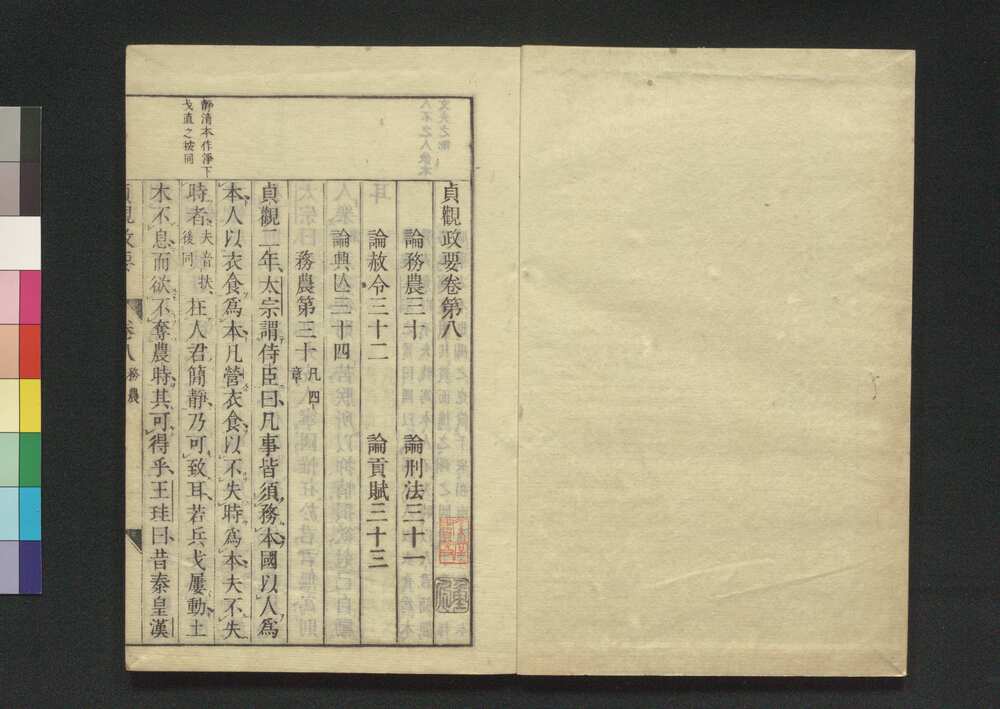 貞觀政要卷第八
論務農三十 論刑法三十一
論赦令三十二 論貢賦三十三
論興亾三十四
務農第三十 凡四章
貞觀二年太宗謂侍臣曰凡事皆須務本國以人爲
本人以衣食爲本凡營衣食以不失時爲本夫不失
時者 夫音扶後同 在人君簡靜乃可致耳若兵戈屢動土
木不息而欲不奪農時其可得乎王珪曰昔秦皇漢
靜清本作淨下
戈直之按同
貞觀政要 卷八 務農